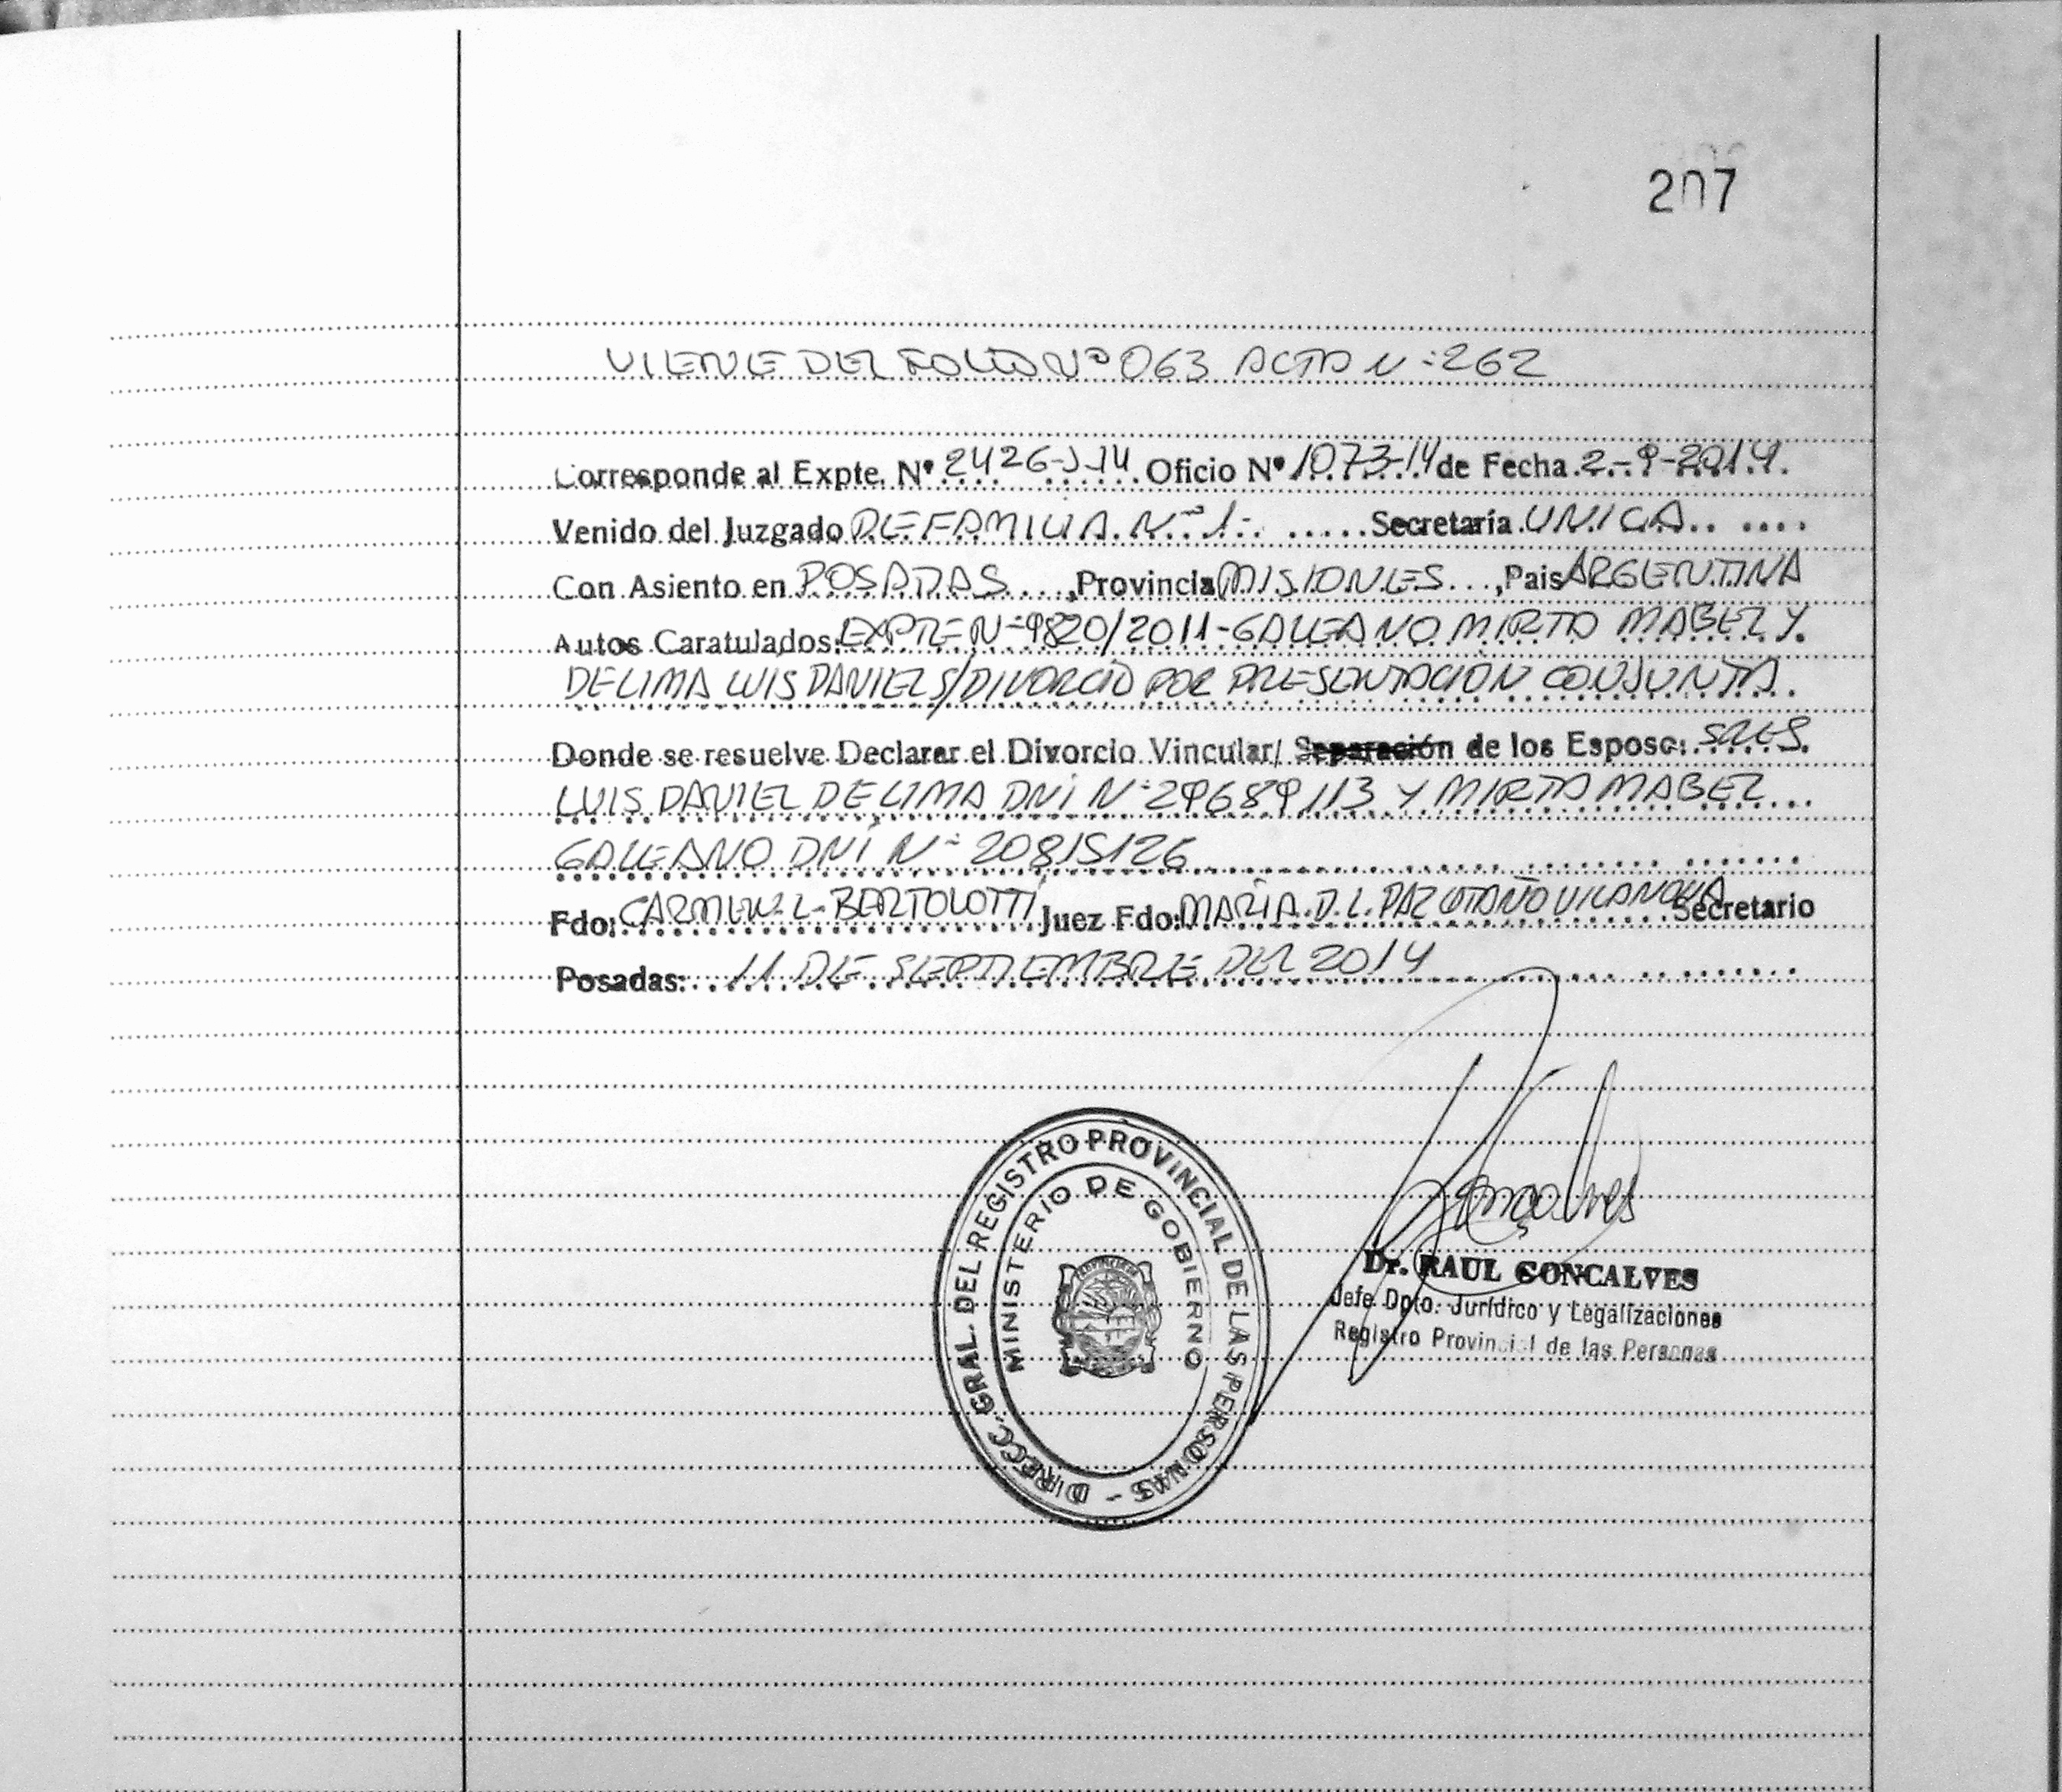 207
VIENE DEL FOLIO Nº 063 ACTA Nº 262
Corresponde al Expte. Nº 2426-J-14 Oficio Nº 1073-14 de Fecha 2-9-2014.
Venido del Juzgado DE FAMILIA Nº 1- Secretaría UNICA
Con Asiento en POSADAS, Provincia MISIONES, Pais ARGENTINA
Autos Caratulados: EXPTE Nº 9820/2011-GALEANO MIRTA MABEL Y
DELIMA LUIS DANIEL S/DIVORCIO POR PRESENTACIÓN CONJUNTA
Donde se resuelve Declarar el Divorcio Vincular/ Separación de los Esposo: SRES
LUIS DANIEL DELIMA DNI Nº 29689113 Y MIRTA MABEL
GALEANO DNI Nº 20815126
Fdo: CARMEN L. BERTOLOTTI Juez Fdo: MARÍA D. L. PAZ OTAÑO VILANOVA Secretario
Posadas: 11 DE SEPTIEMBRE DEL 2014
DIRECC. GRAL. DEL REGISTRO PROVINCIAL DE LAS PERSONAS -
MINISTERIO DE GOBIERNO
Goncalves
Dr. RAUL GONCALVES
Jefe Dpto. Jurídico y Legalizaciones
Registro Provincial de las Personas